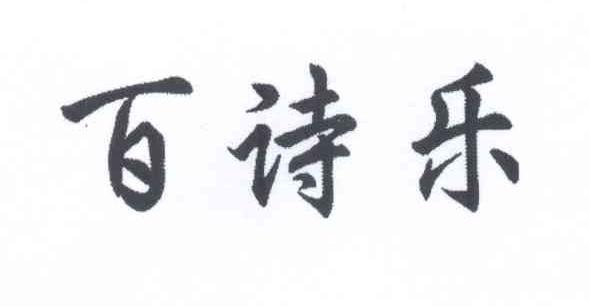 百诗乐